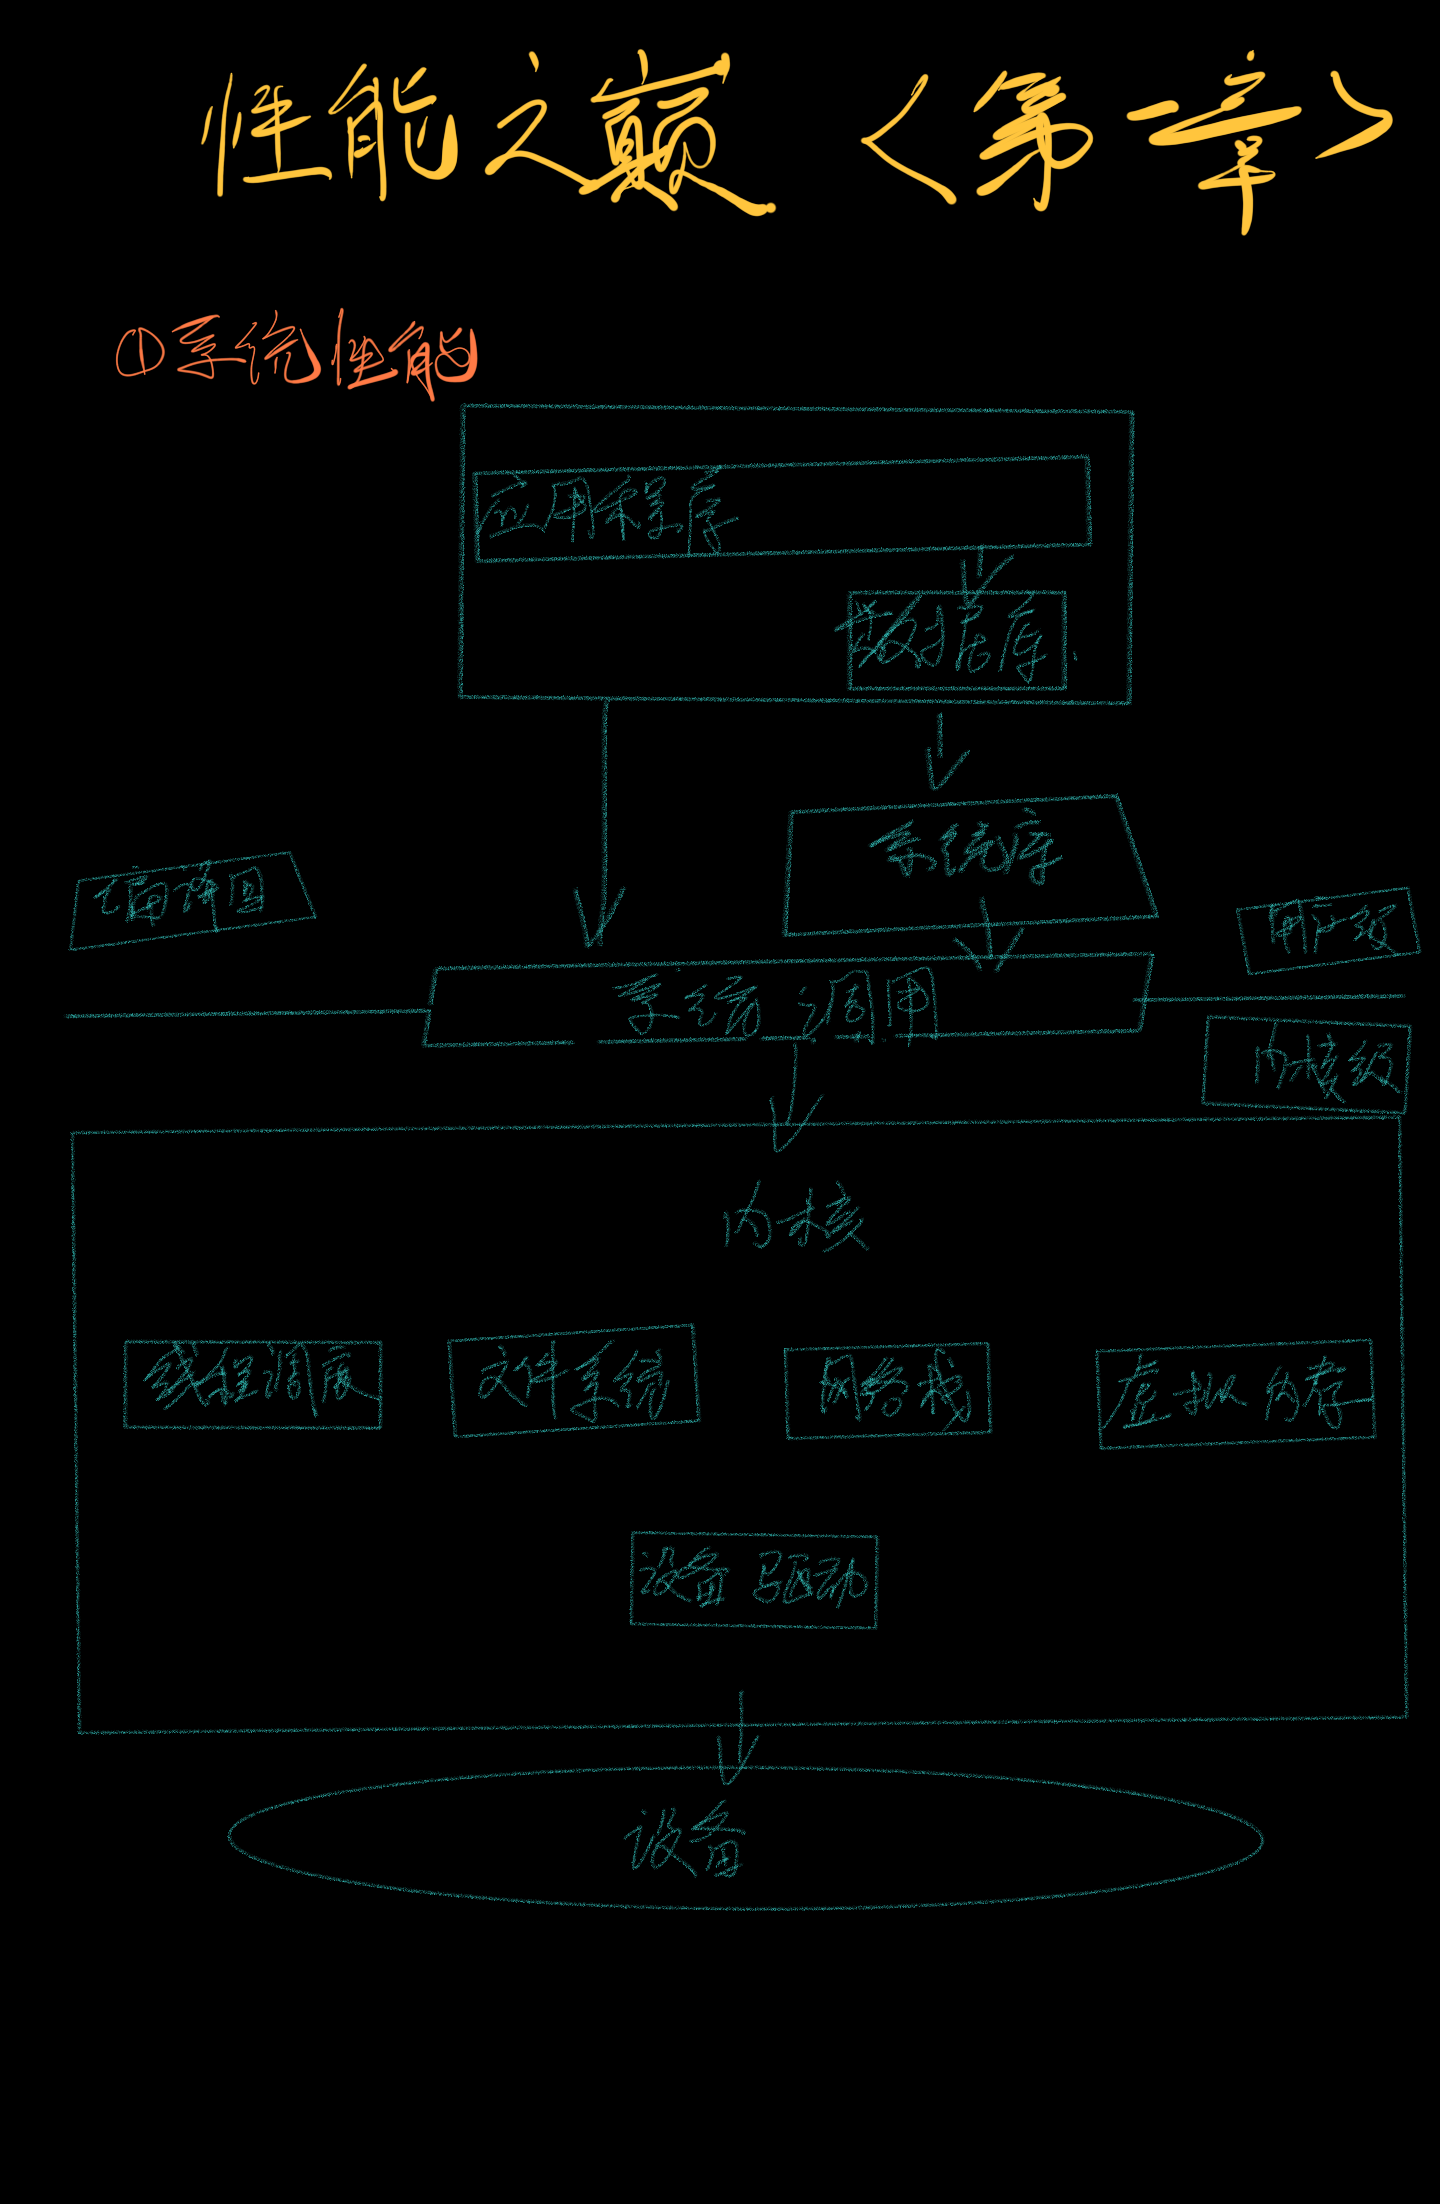 性能之巅〈第一章〉
①系统性能
应用程序
数据库
系统库
端译图
用户级
系统调用
内核级
内核
线程调度
文件系统
网络栈
虚拟内存
设备驱动
设备